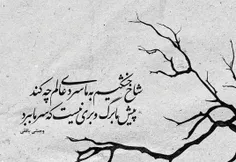 شاخ خشکیم به ما سردی عالم چه کند
پیش ما برگ و بری نیست که سرما ببرد
وحشی بافقی